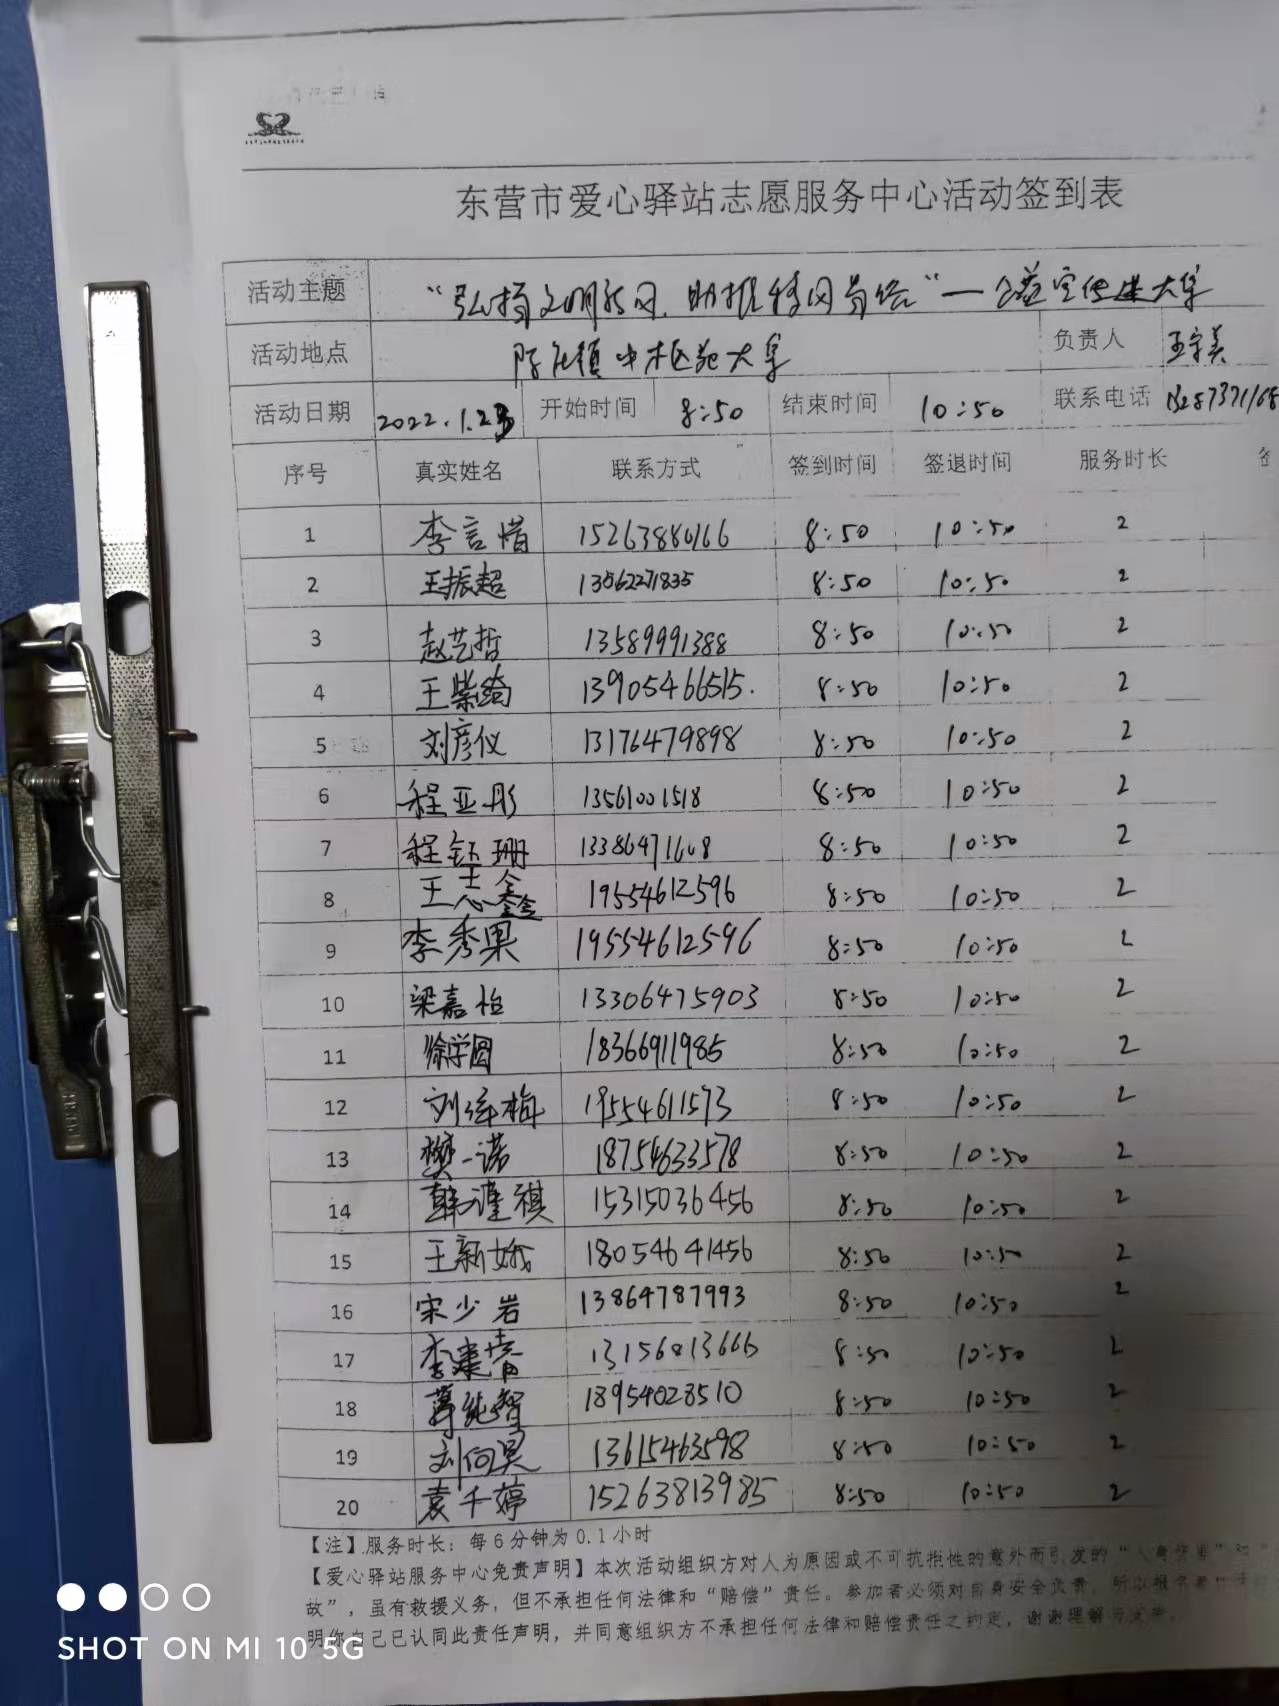 东营市爱心驿站志愿服务中心活动签到表
活动主题 “弘扬文明新风,助推移风易俗”—公益宣传进大集
活动地点 陈庄镇中心 大集 负责人
活动日期 2022.1.23 开始时间 8:50 结束时间 10:50 联系电话
序号 真实姓名 联系方式 签到时间 签退时间 服务时长
1 李言惜 15263886166 8:50 10:50 2
2 王振超 13562271835 8:50 10:50 2
3 赵艺哲 13589991388 8:50 10:50 2
4 王紫绮 13905466515. 8:50 10:50 2
5 刘彦仪 13176479898 8:50 10:50 2
6 程亚彤 13561001518 8:50 10:50 2
7 程钰珊 13386471608 8:50 10:50 2
8 王志鑫 19554612596 8:50 10:50 2
9 李秀果 19554612596 8:50 10:50 2
10 梁嘉怡 13306475903 8:50 10:50 2
11 徐学圆 18366911985 8:50 10:50 2
12 19554611573 8:50 10:50 2
13 樊一诺 18754633578 8:50 10:50 2
14 韩谨祺 15315036456 8:50 10:50 2
15 王新娥 18054641456 8:50 10:50 2
16 宋少岩 13864787993 8:50 10:50 2
17 李建青 13156813666 8:50 10:50 2
18 18954028510 8:50 10:50 2
19 刘向昊 13615463598 8:50 10:50 2
20 袁千婷 15263813985 8:50 10:50 2
【注】服务时长:每6分钟为0.1小时
【爱心驿站服务中心免责声明】本次活动组织方对人为原因或不可抗拒性的意外而引发的“人身伤害”
故”,虽有救援义务,但不承担任何法律和“赔偿”责任。参加者必须对自身安全负责,所以报名者
明你自己已认同此责任声明,并同意组织方不承担任何法律和赔偿责任之约定,谢谢理解与支持。
SHOT ON MI 10 5G